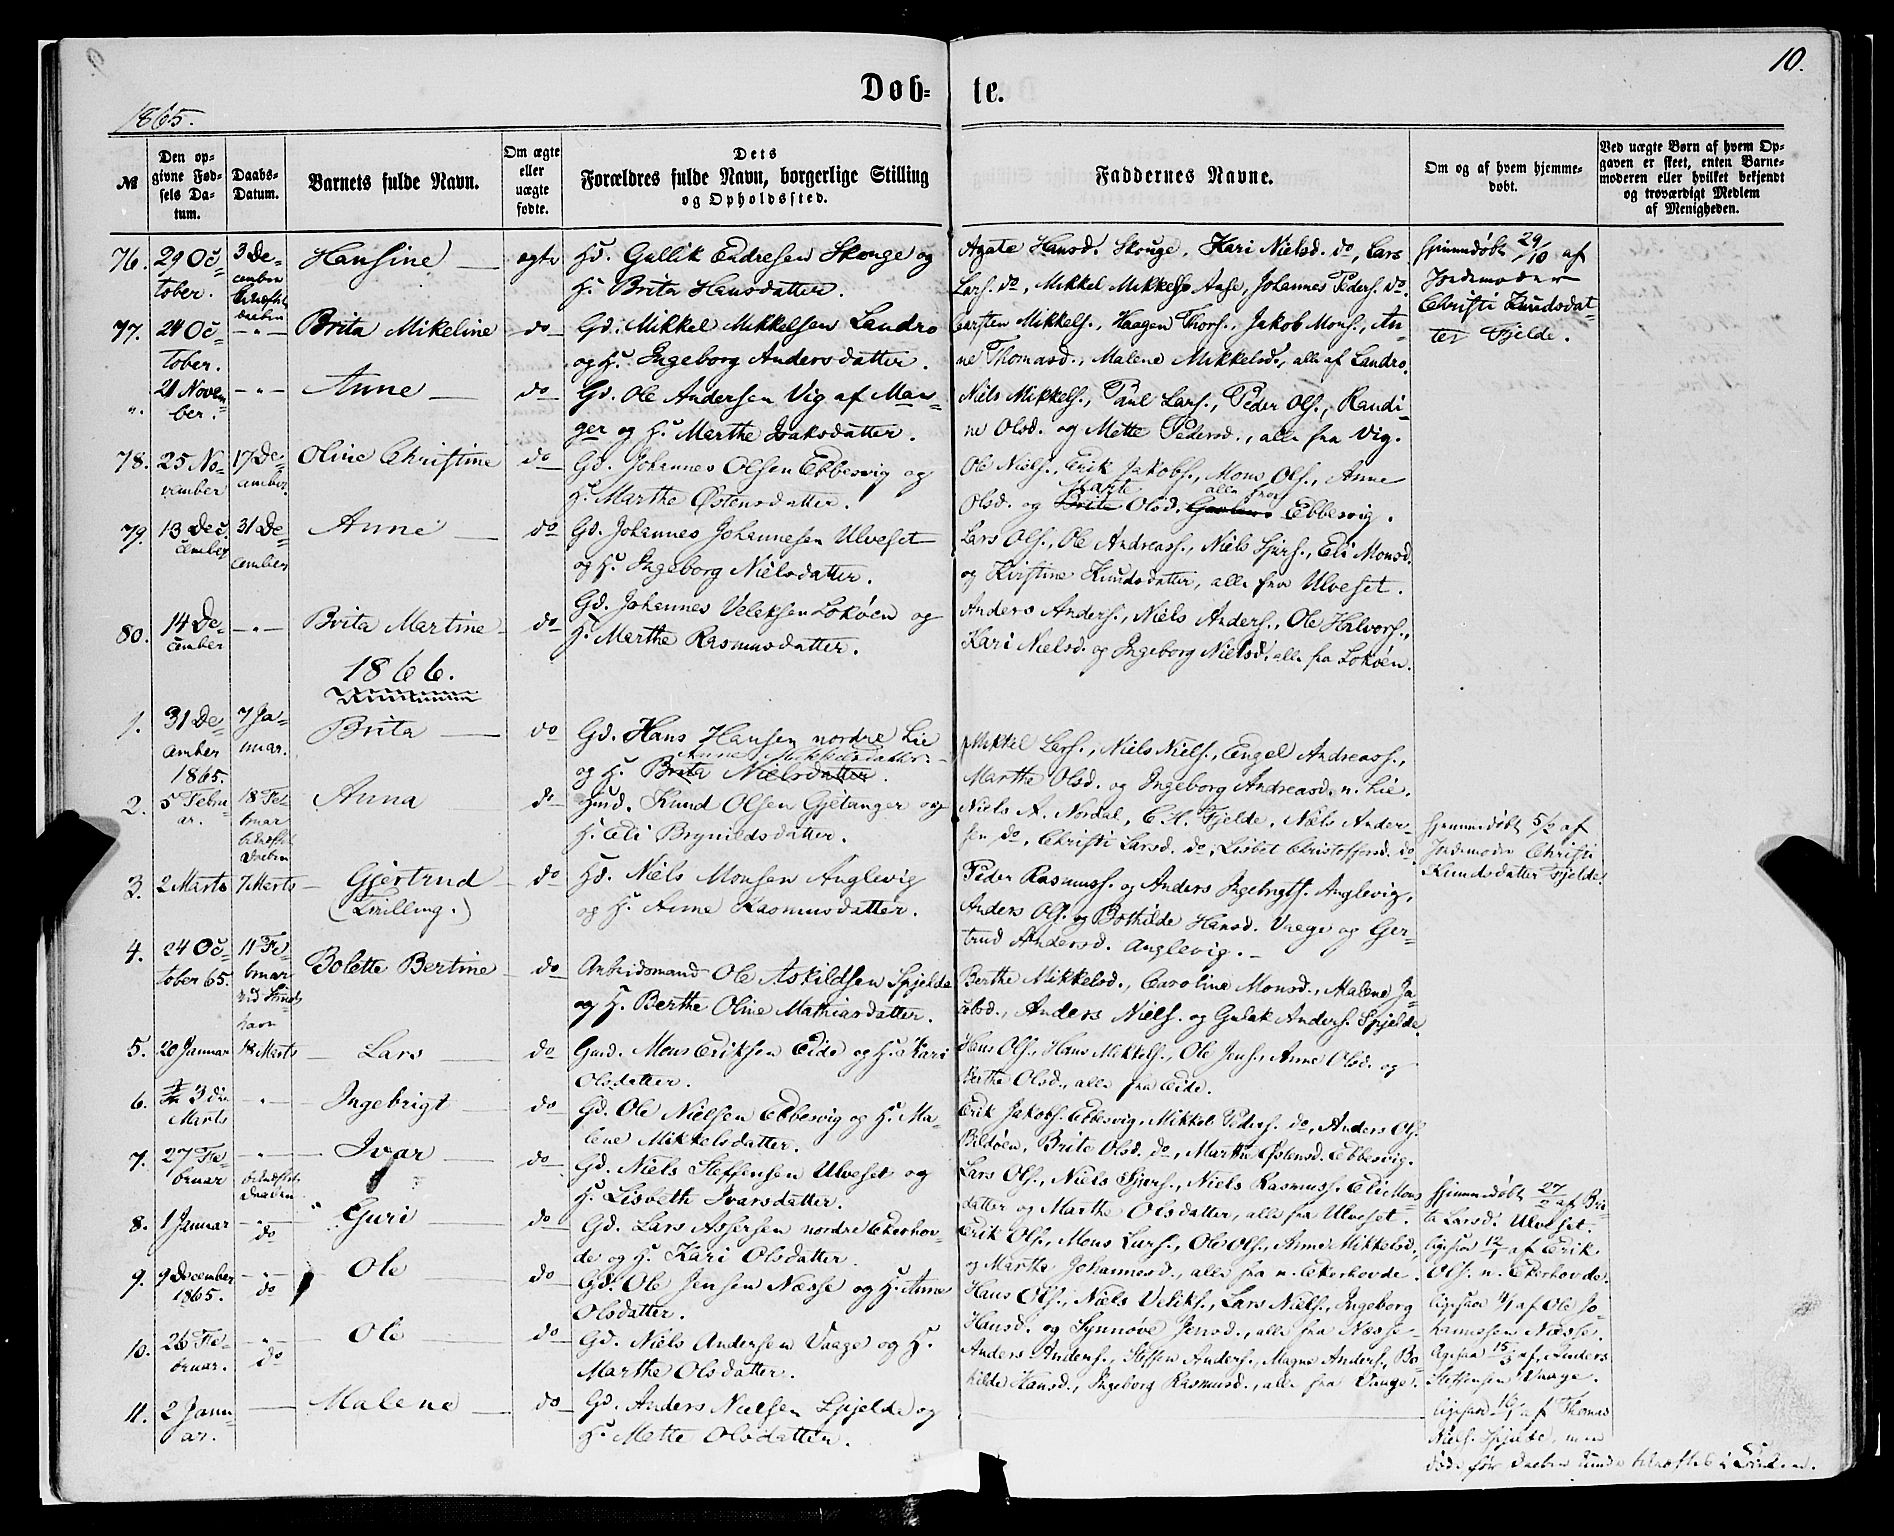 9
10.
Døb-te.
1865.
№
Den opgivne Fødsels Datum.
Daabs-Datum.
Barnets fulde Navn.
Om ægte eller uægte fødte.
Dets Forældres fulde Navn, borgerlige Stilling og Opholdssted.
Faddernes Navne.
Om og af hvem hjemmedøbt.
Ved uægte Børn af hvem Opgaven er skeet, enten Barnemoderen eller hvilket bekjendt og troværdigt Medlem af Menigheden.
76. 29 October. 3 December Hansine ægte Gd. Gullik Endresen Skouge og
H. Brita Hansdatter.
Agate Hansd. Skouge, Kari Nielsd. do, Lars
Lars. do, Mikkel Mikkels. Aase, Johannes Peders. do.
Hjemmedøbt 29/10 af
Jordemoder
Christi Knudsdatter Fjelde.
77. 24 October. -"- Brita Mikeline do Gd. Mikkel Mikkelsen Landro
og H. Ingeborg Andersdatter.
Carsten Mikkels., Haagen Thors., Jakob Mons., Anne
Thomasd., Malene Mikkelsd., alle af Landro.
". 21 November. -"- Anne do Gd. Ole Andersen Vig af Manger
og H. Marthe Isaksdatter.
Niels Mikkels., Paul Lars., Peder Ols., Randine
Olsd. og Mette Pedersd., alle fra Vig.
78. 25 November 17 December. Oline Christine do Gd. Johannes Olsen Ebbesvig og
H. Marthe Østensdatter.
Ole Niels., Erik Jakobs., Mons Ols., Anne
Olsd. og Marte Olsd. alle fra Ebbesvig.
79. 13 December 31 December Anne do Gd. Johannes Johannesen Ulveset
og H. Ingeborg Nielsdatter.
Lars Ols., Ole Andreass., Niels Sjurs., Eli Monsd.
og Kirstine Knudsdatter, alle fra Ulveset.
80. 14 December -"- Brita Martine do Gd. Johannes Veleksen Lokøen og
H. Marthe Rasmusdatter.
Anders Anders., Niels Anders., Ole Halvors.,
Kari Nielsd. og Ingeborg Nielsd. alle fra Lokøen.
1866.
1. 31 December 1865. 7 Januar. Brita do Gd. Hans Hansen nordre Lie
og H. Brita Nielsdatter.
Mikkel Lars., Niels Niels., Engel Andreass.,
Marthe Olsd. og Ingeborg Andreasd. n. Lie.
2. 5 Februar. 18 Februar bekræftet Daaben Anna do Hmd. Knud Olsen Gjetanger og
H. Eli Brynildsdatter.
Niels A. Nordal, C. H. Fjelde, Niels Andersen
do, Christi Larsd. do, Lisbet Christoffersd. do
Hjemmedøbt 5/2 af
Jordemoder Christi
Knudsdatter Fjelde.
3. 2 Marts 7 Marts Gjertrud (Tvilling.) do Hd. Niels Monsen Anglevig
og H. Anne Rasmusdatter.
Peder Rasmuss. og Anders Ingebrigts. Anglevig,
Anders Ols. og Bothilde Hansd. Vaage og Gertrud
Andersd. Anglevig.
4. 24 October 65. 11 Februar Bolette Bertine do Arbeidsmand Ole Askildsen Spjelde
og H. Berthe Oline Mathiasdatter.
Berthe Mikkelsd., Caroline Monsd., Malene Jacobsd.,
Anders Niels. og Gulak Anders. Spjelde
5. 20 Januar 18 Marts Lars do Gmd. Mons Eriksen Eide og H. Kari
Olsdatter.
Hans Ols., Hans Mikkels., Ole Jens., Anne Olsd. og
Berthe Olsd., alle fra Eide.
6. 3 Marts -"- Ingebrigt do Gd. Ole Nielsen Ebbesvig og H. Malene
Mikkelsdatter.
Erik Jakobs. Ebbesvig, Mikkel Peders. do, Anders Ols.
Bildøen, Brite Olsd. do, Marthe Østensd. Ebbesvig.
7. 27 Februar -"- bekræftet Daaben Ivar do Gd. Niels Steffensen Ulveset og
H. Lisbeth Ivarsdatter.
Lars Ols., Niels Sjurs., Niels Rasmuss. Eli Monsdatter
og Marthe Olsdatter, alle fra Ulveset.
Hjemmedøbt 27/2 af Brita
Larsd. Ulveset.
8. 1 Januar -"- do Guri do Gd. Lars Assersen nordre Ekerhovde
og H. Kari Olsdatter.
Erik Ols., Mons Lars., Ole Ols., Anne Mikkelsd.,
og Marthe Johannesd., alle fra n. Ekerhovde.
ligesaa 12/1 af Erik
Ols. n. Ekerhovde.
9. 9 December 1865. -"- do Ole do Gd. Ole Jensen Næsse og H. Anne
Olsdatter.
Hans Ols., Niels Veliks., Lars Niels., Ingeborg
Hansd. og Synnøve Jensd., alle fra Næsse
ligesaa 4/1 af Ole Johannessen
Næsse.
10. 26 Februar. -"- do Ole do Gd. Niels Andersen Vaage og H.
Marthe Olsdatter.
Anders Anders., Steffen Anders., Magne Anders., Bothilde
Hansd., Ingeborg Rasmusd., alle fra Vaage.
ligesaa 15/3 af Anders
Steffensen Vaage.
11. 2 Januar. Malene do Gd. Anders Nielsen Spjelde og
H. Mette Olsdatter.
ligesaa 10/1 af Thomas
Niels. Spjelde, men
døde før Daaben kunde bekræftes i Kirken.